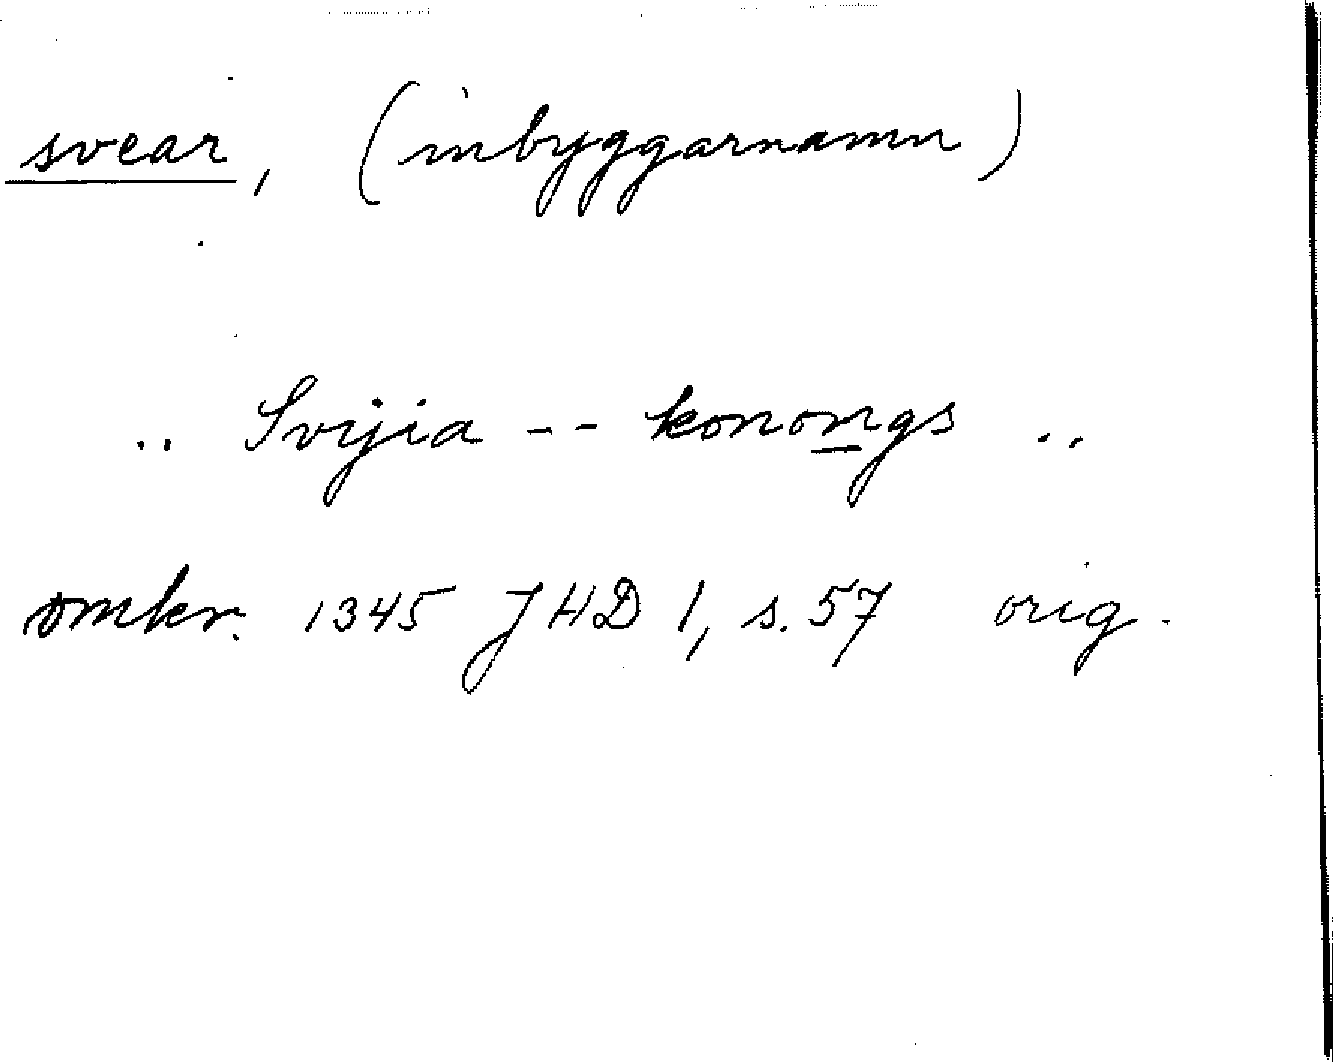 svear, (inbyggarnamn)
.. Svijia -- konongs ..
omkr. 1345 JHD 1, s. 57 orig.